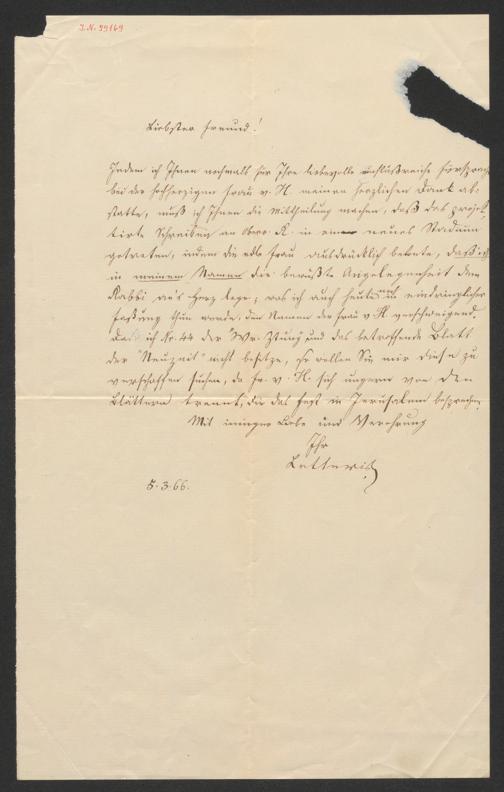 J.N. 99169
Liebster Freund!
Indem ich Ihnen nochmals für Ihre liebevolle einflußreiche Fürsprache
bei der hochherzigen Frau v. H. meinen herzlichen Dank ab-
statte, muß ich Ihnen die Mittheilung machen, daß das projek-
tirte Schreiben an Obrr. K. in ein neues Stadium
getreten, indem die edle Frau ausdrücklich betont, daß ich
in meinem Namen die bewußte Angelegenheit dem
Rabbi an's Herz lege; was ich auch heute noch in eindringlicher
Faßung thun werde, den Namen der Frau v. H. verschweigend.
Da ich Nr. 44 der "Wr. Ztung" und das betreffende Blatt
der "Neuzeit" nicht besitze, so wollen Sie mir diese zu
verschaffen suchen, da Fr. v. H. sich ungern von den
Blättern trennt, die das Fest in Jerusalem besprechen.
Mit inniger Liebe und Verehrung
Ihr
Letteris
5.3.66.